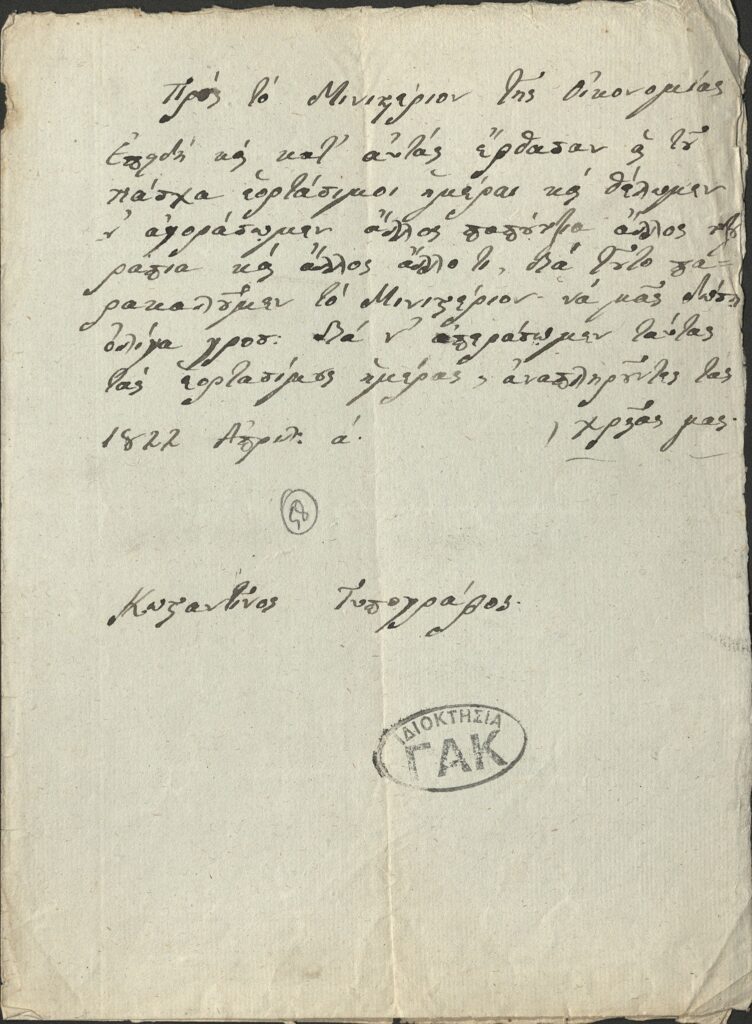 Πρὸς τὸ Μινιστέριον τῆς Οἰκονομίας
Ἐπειδὴ καὶ κατ' αὐτὰς ἔφθασαν αἱ τοῦ
πάσχα ἑορτάσιμοι ἡμέραι καὶ θέλωμεν
ν' ἀγοράσωμεν ἄλλος παπούτζια ἄλλος
ράπια καὶ ἄλλος ἄλλο τι, διὰ τοῦτο πα-
ρακαλοῦμεν τὸ Μινιστέριον νὰ μᾶς δώσῃ
ὀλίγα γροσ: διὰ ν' ἀπεράσωμεν ταύτας
τὰς ἑορτασίμους ἡμέρας, ἀναπληροῦντες τὰς
1822 Ἀπριλ: ά. χρείας μας.
Κωνσταντῖνος Τυπογράφος.
ΙΔΙΟΚΤΗΣΙΑ
ΓΑΚ